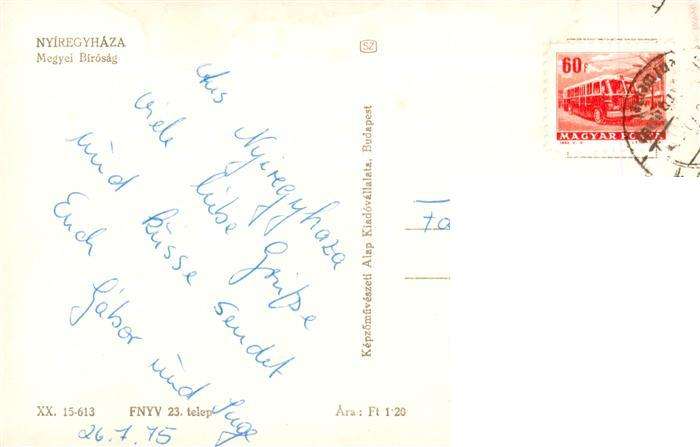 NYÍREGYHÁZA
Megyei Bíróság
SZ
60f
MAGYAR POSTA
Aus Nyiregyhaza
viele liebe Grüße
und Küsse sendet
Euch Gábor und Inge
26.7.75
Képzőművészeti Alap Kiadóvállalata, Budapest
Fa
XX. 15-613
FNYV 23. telep
Ára: Ft 1·20